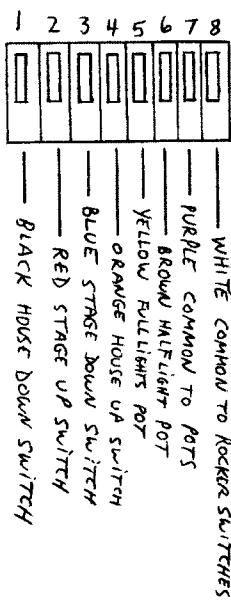 1 2 3 4 5 6 7 8
BLACK HOUSE DOWN SWITCH
RED STAGE UP SWITCH
BLUE STAGE DOWN SWITCH
ORANGE HOUSE UP SWITCH
YELLOW FULL LIGHTS POT
BROWN HALF LIGHT POT
PURPLE COMMON TO POTS
WHITE COMMON TO ROCKER SWITCHES